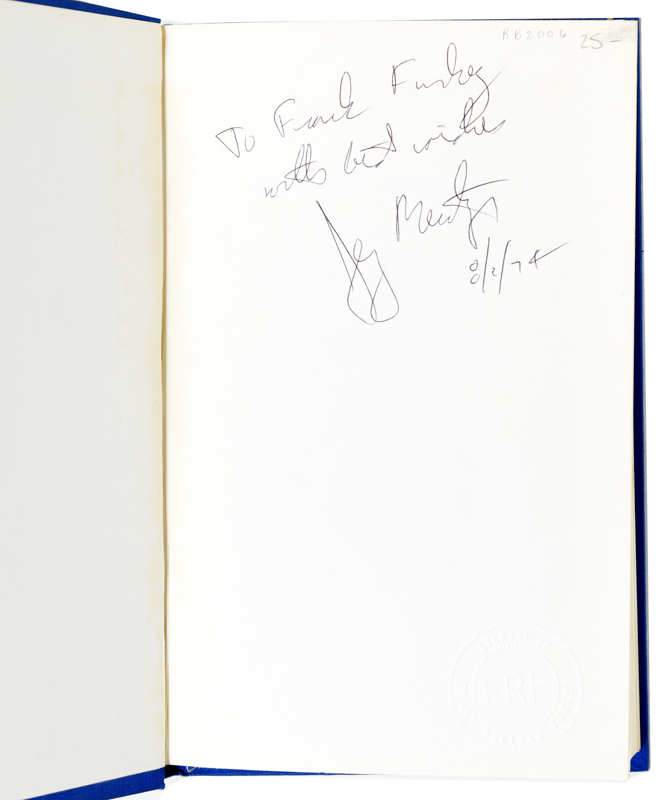 RB2006 25-
To Frank Furkey
with best wishes
Jay Mentzs
8/2/74
FRF